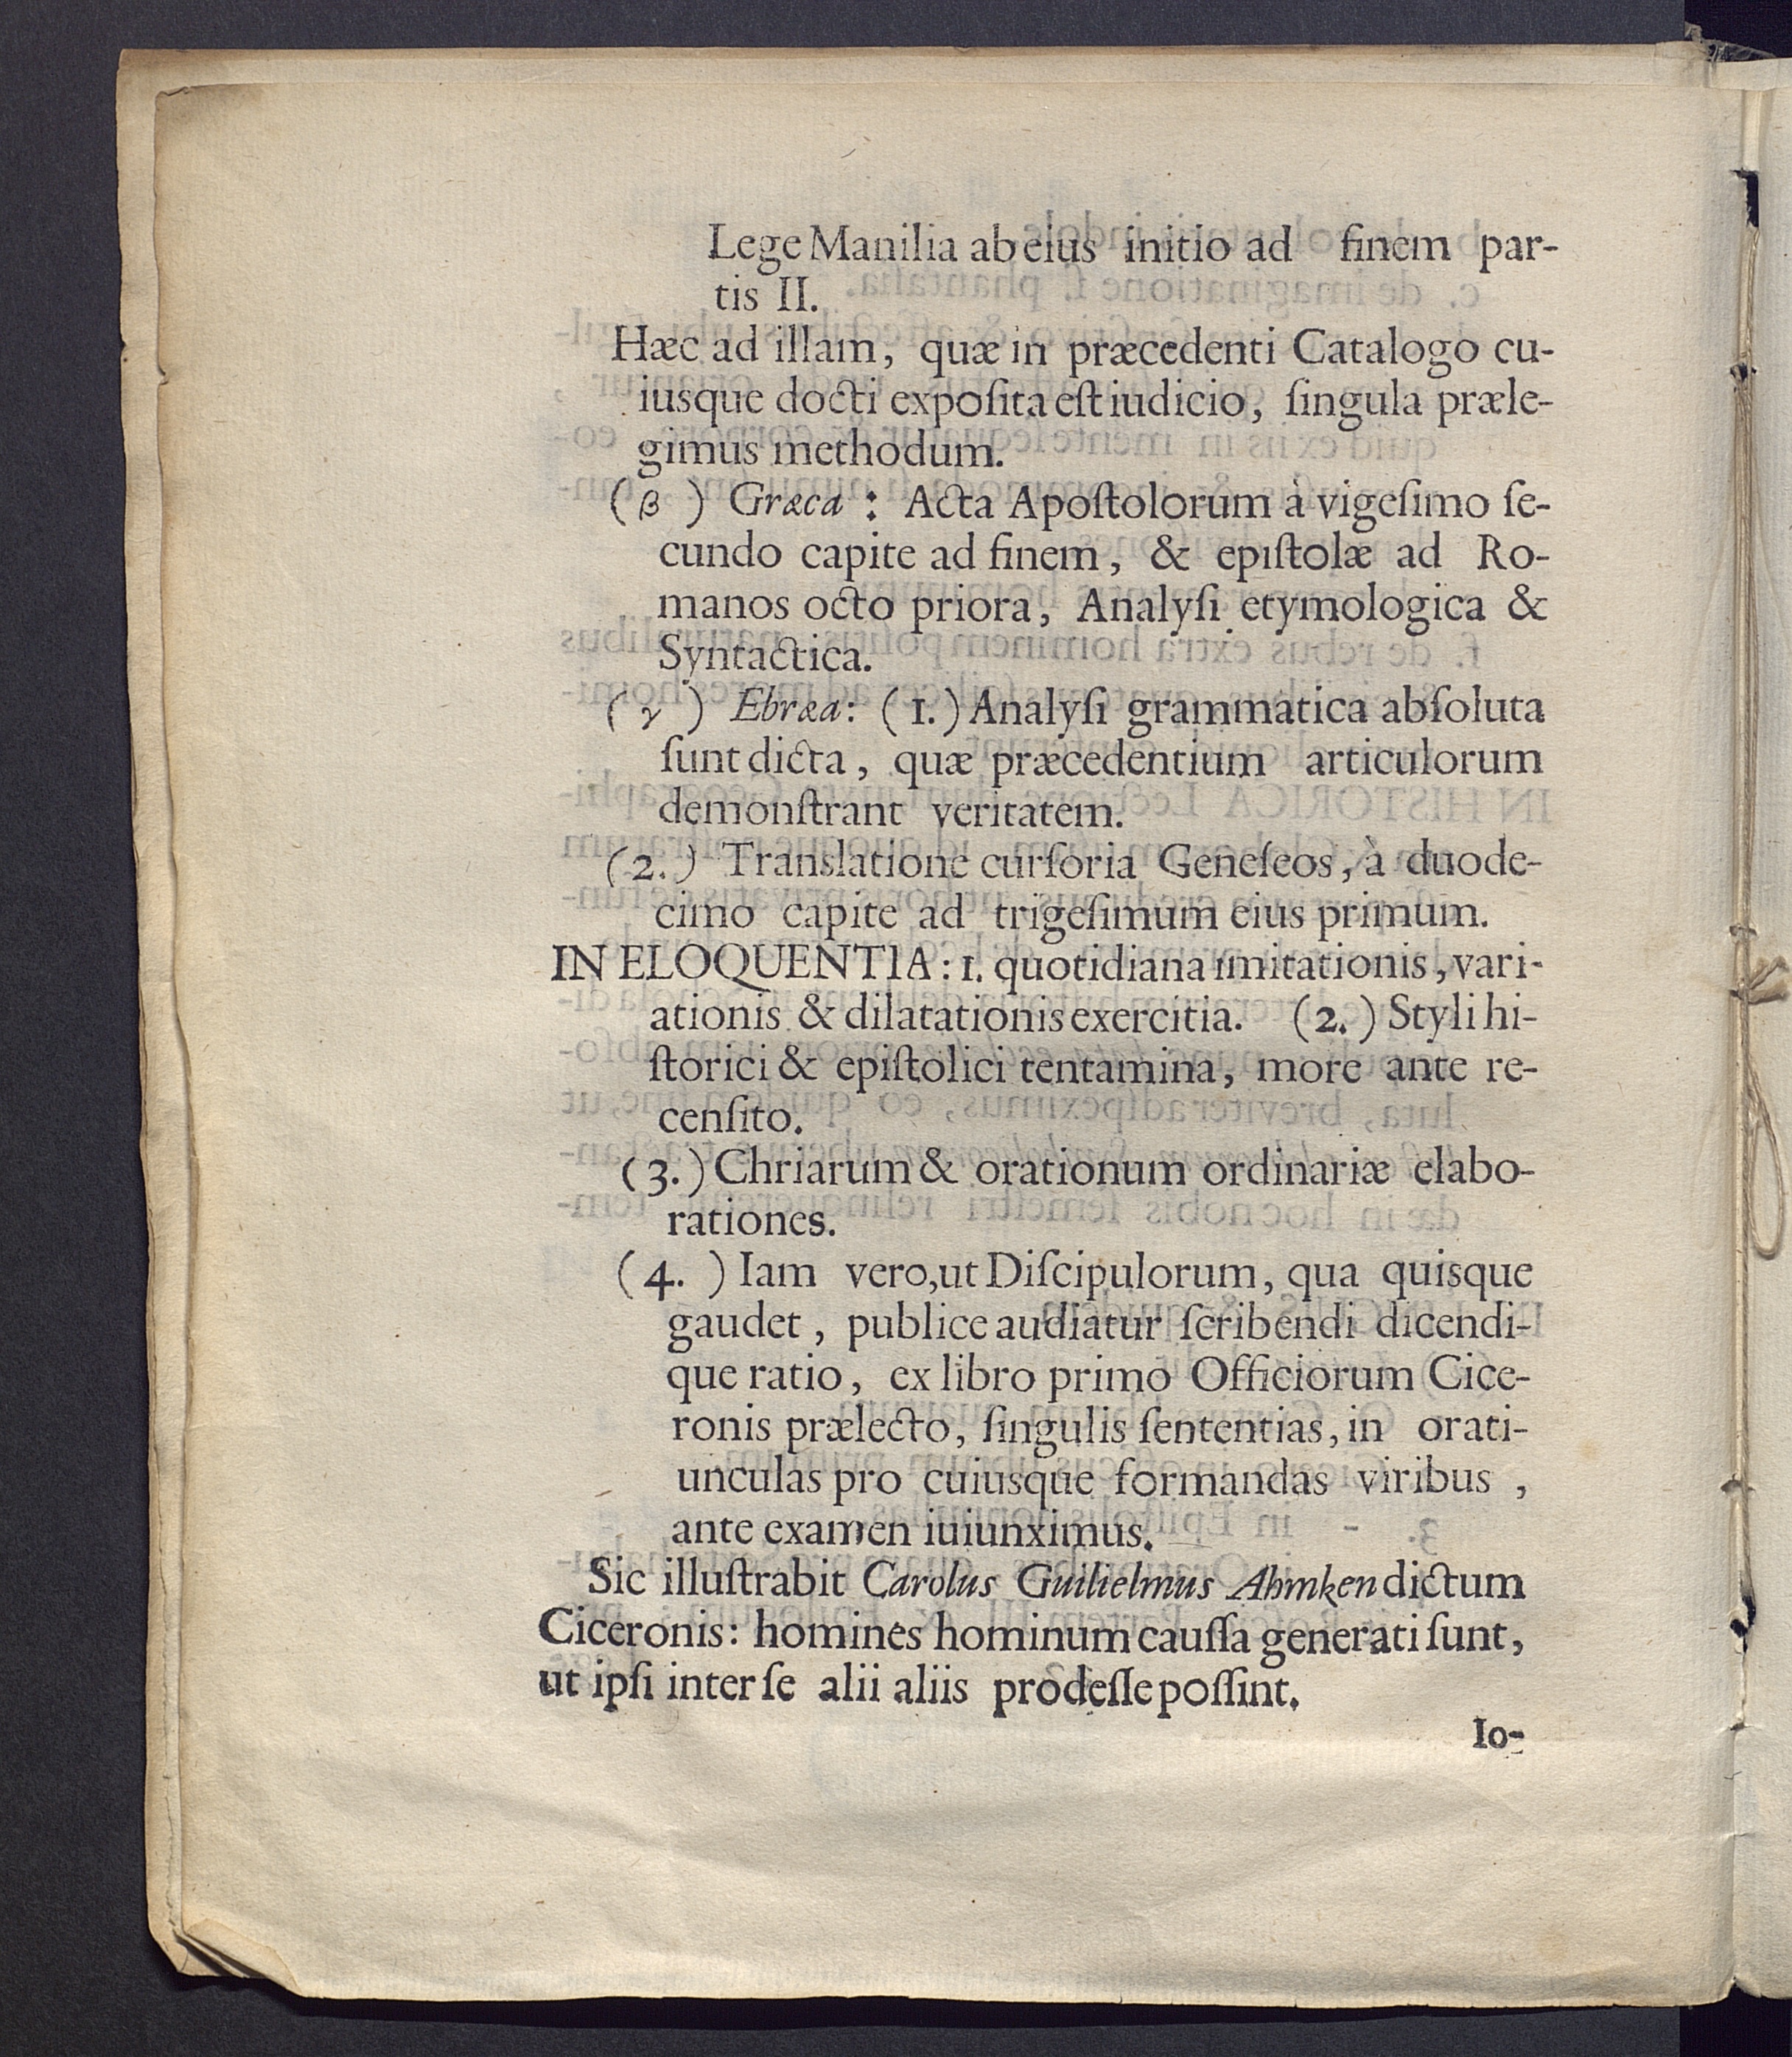 Lege Manilia ab eius initio ad finem par-
tis II.
Hæc ad illam, quæ in præcedenti Catalogo cu-
iusque docti expoſita eſt iudicio, ſingula præle-
gimus methodum.
(β) Græca: Acta Apoſtolorum à vigeſimo ſe-
cundo capite ad finem, & epiſtolæ ad Ro-
manos octo priora, Analyſi etymologica &
Syntactica.
(γ) Ebræa: (1.) Analyſi grammatica abſoluta
ſunt dicta, quæ præcedentium articulorum
demonſtrant veritatem.
(2.) Translatione curſoria Geneſeos, à duode-
cimo capite ad trigeſimum eius primum.
IN ELOQUENTIA: 1. quotidiana imitationis, vari-
ationis & dilatationis exercitia. (2.) Styli hi-
ſtorici & epiſtolici tentamina, more ante re-
cenſito.
(3.) Chriarum & orationum ordinariæ elabo-
rationes.
(4.) Iam vero, ut Diſcipulorum, qua quisque
gaudet, publice audiatur ſcribendi dicendi-
que ratio, ex libro primo Officiorum Cice-
ronis prælecto, ſingulis ſententias, in orati-
unculas pro cuiusque formandas viribus,
ante examen iuiunximus.
Sic illuſtrabit Carolus Guilielmus Ahmken dictum
Ciceronis: homines hominum cauſſa generati ſunt,
ut ipſi inter ſe alii aliis prodeſſe poſſint.
Io-